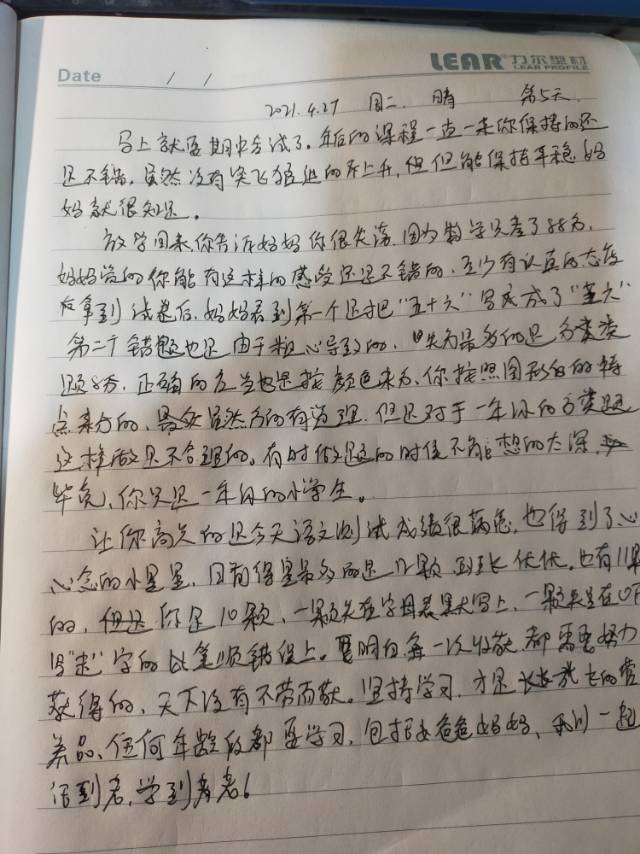 Date / /
LEAR 力尔型材
LEAR PROFILE
2021.4.27 周二 晴 第5天
马上就要期中考试了。年后的课程一直一来你保持的还
还不错,虽然没有突飞猛进的上升,但能保持平稳妈
妈就很知足。
放学回来,你告诉妈妈你很失落,因为数学只考了88分,
妈妈觉的你能有这样的感受还是不错的,至少有认真的态度
拿到试卷后,妈妈看到第一个还把“五十六”写成了“五六”
第二个错题也是由于粗心导致的,失分最多的是分类类
题8分,正确的应当也是按颜色来分,你按照图形的特
点来分的,虽然分的有道理,但是对于一年级的分类题
这样做是不合理的。有时做题的时候不能想的太深,
毕竟,你只是一年级的小学生。
让你高兴的是今天语文测试成绩很满意,也得到了心
心念的小星星,目前得星最多的是12颗 优优,也有11颗
的,但是你是10颗,一颗失在字母表默写上,一颗失在
写“书”字的笔顺错误上。要明白每一次收获都需要努力
获得的,天下没有不劳而获。坚持学习,才是成长的营
养品,任何年龄段都要学习,包括爸爸妈妈,我们一起
活到老,学到老!